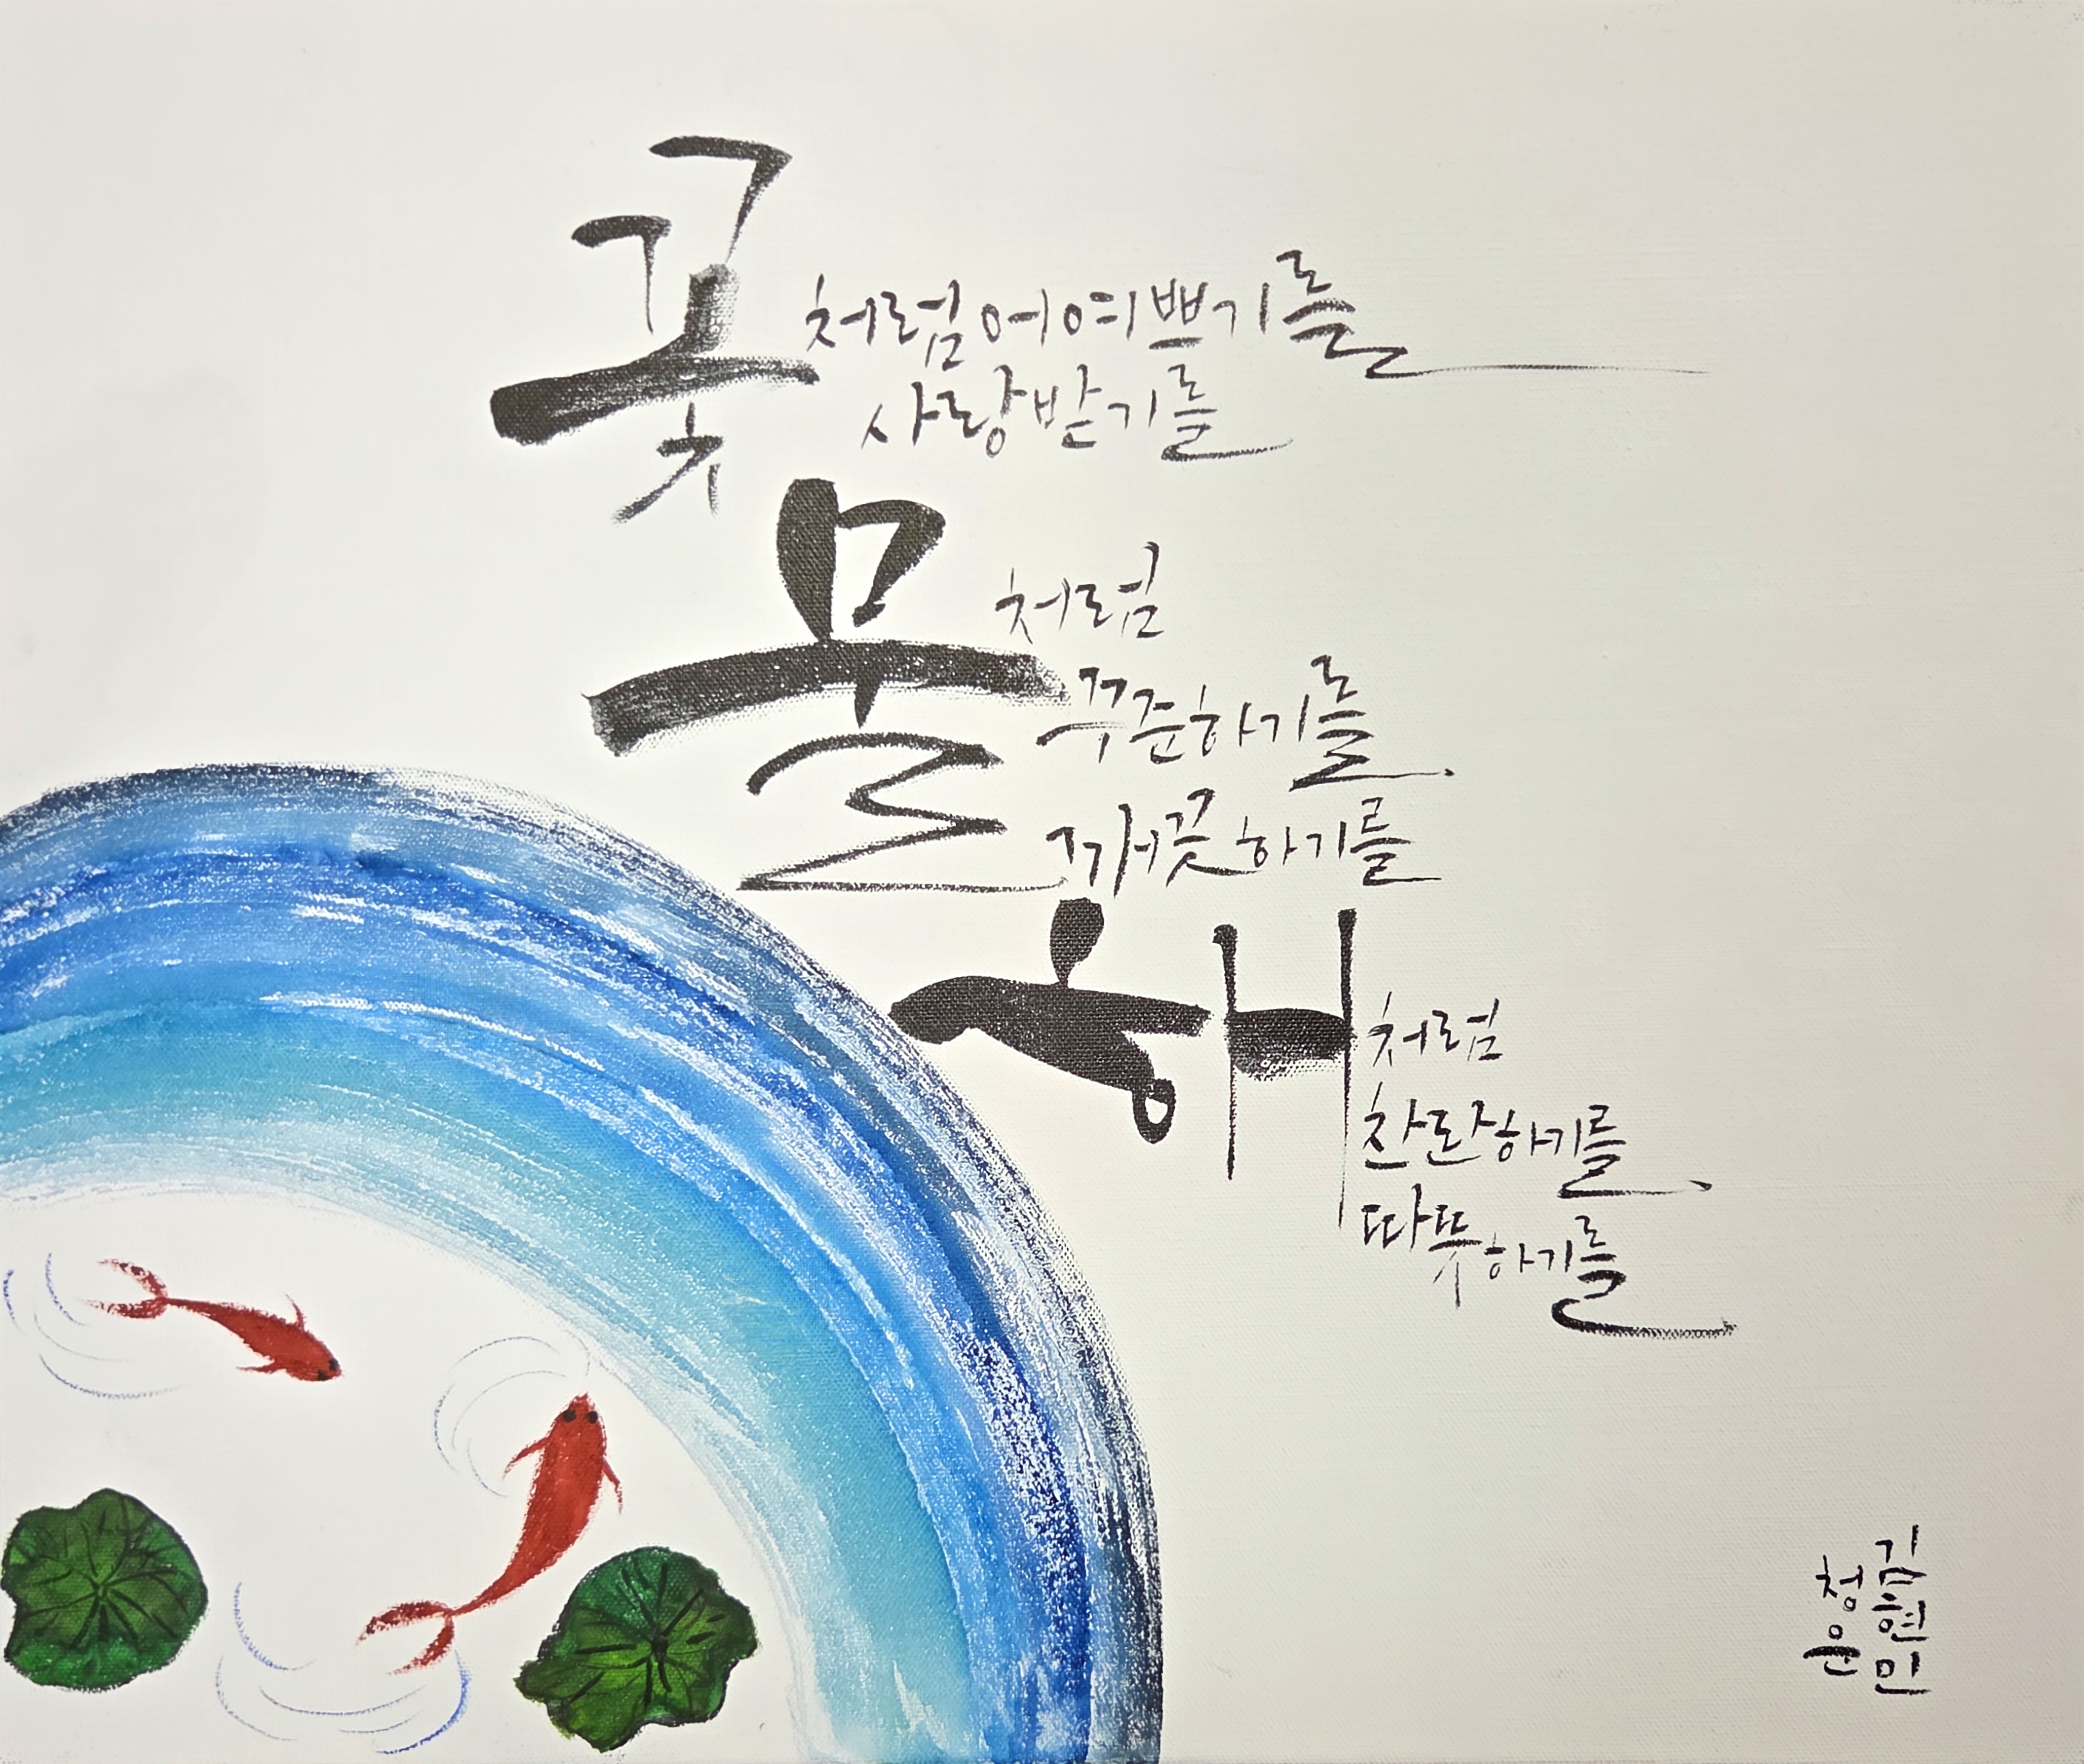 꽃처럼 어여쁘기를
사랑받기를
물처럼
꾸준하기를
깨끗하기를
해처럼
찬란하기를
따뜻하기를
김현민
청운